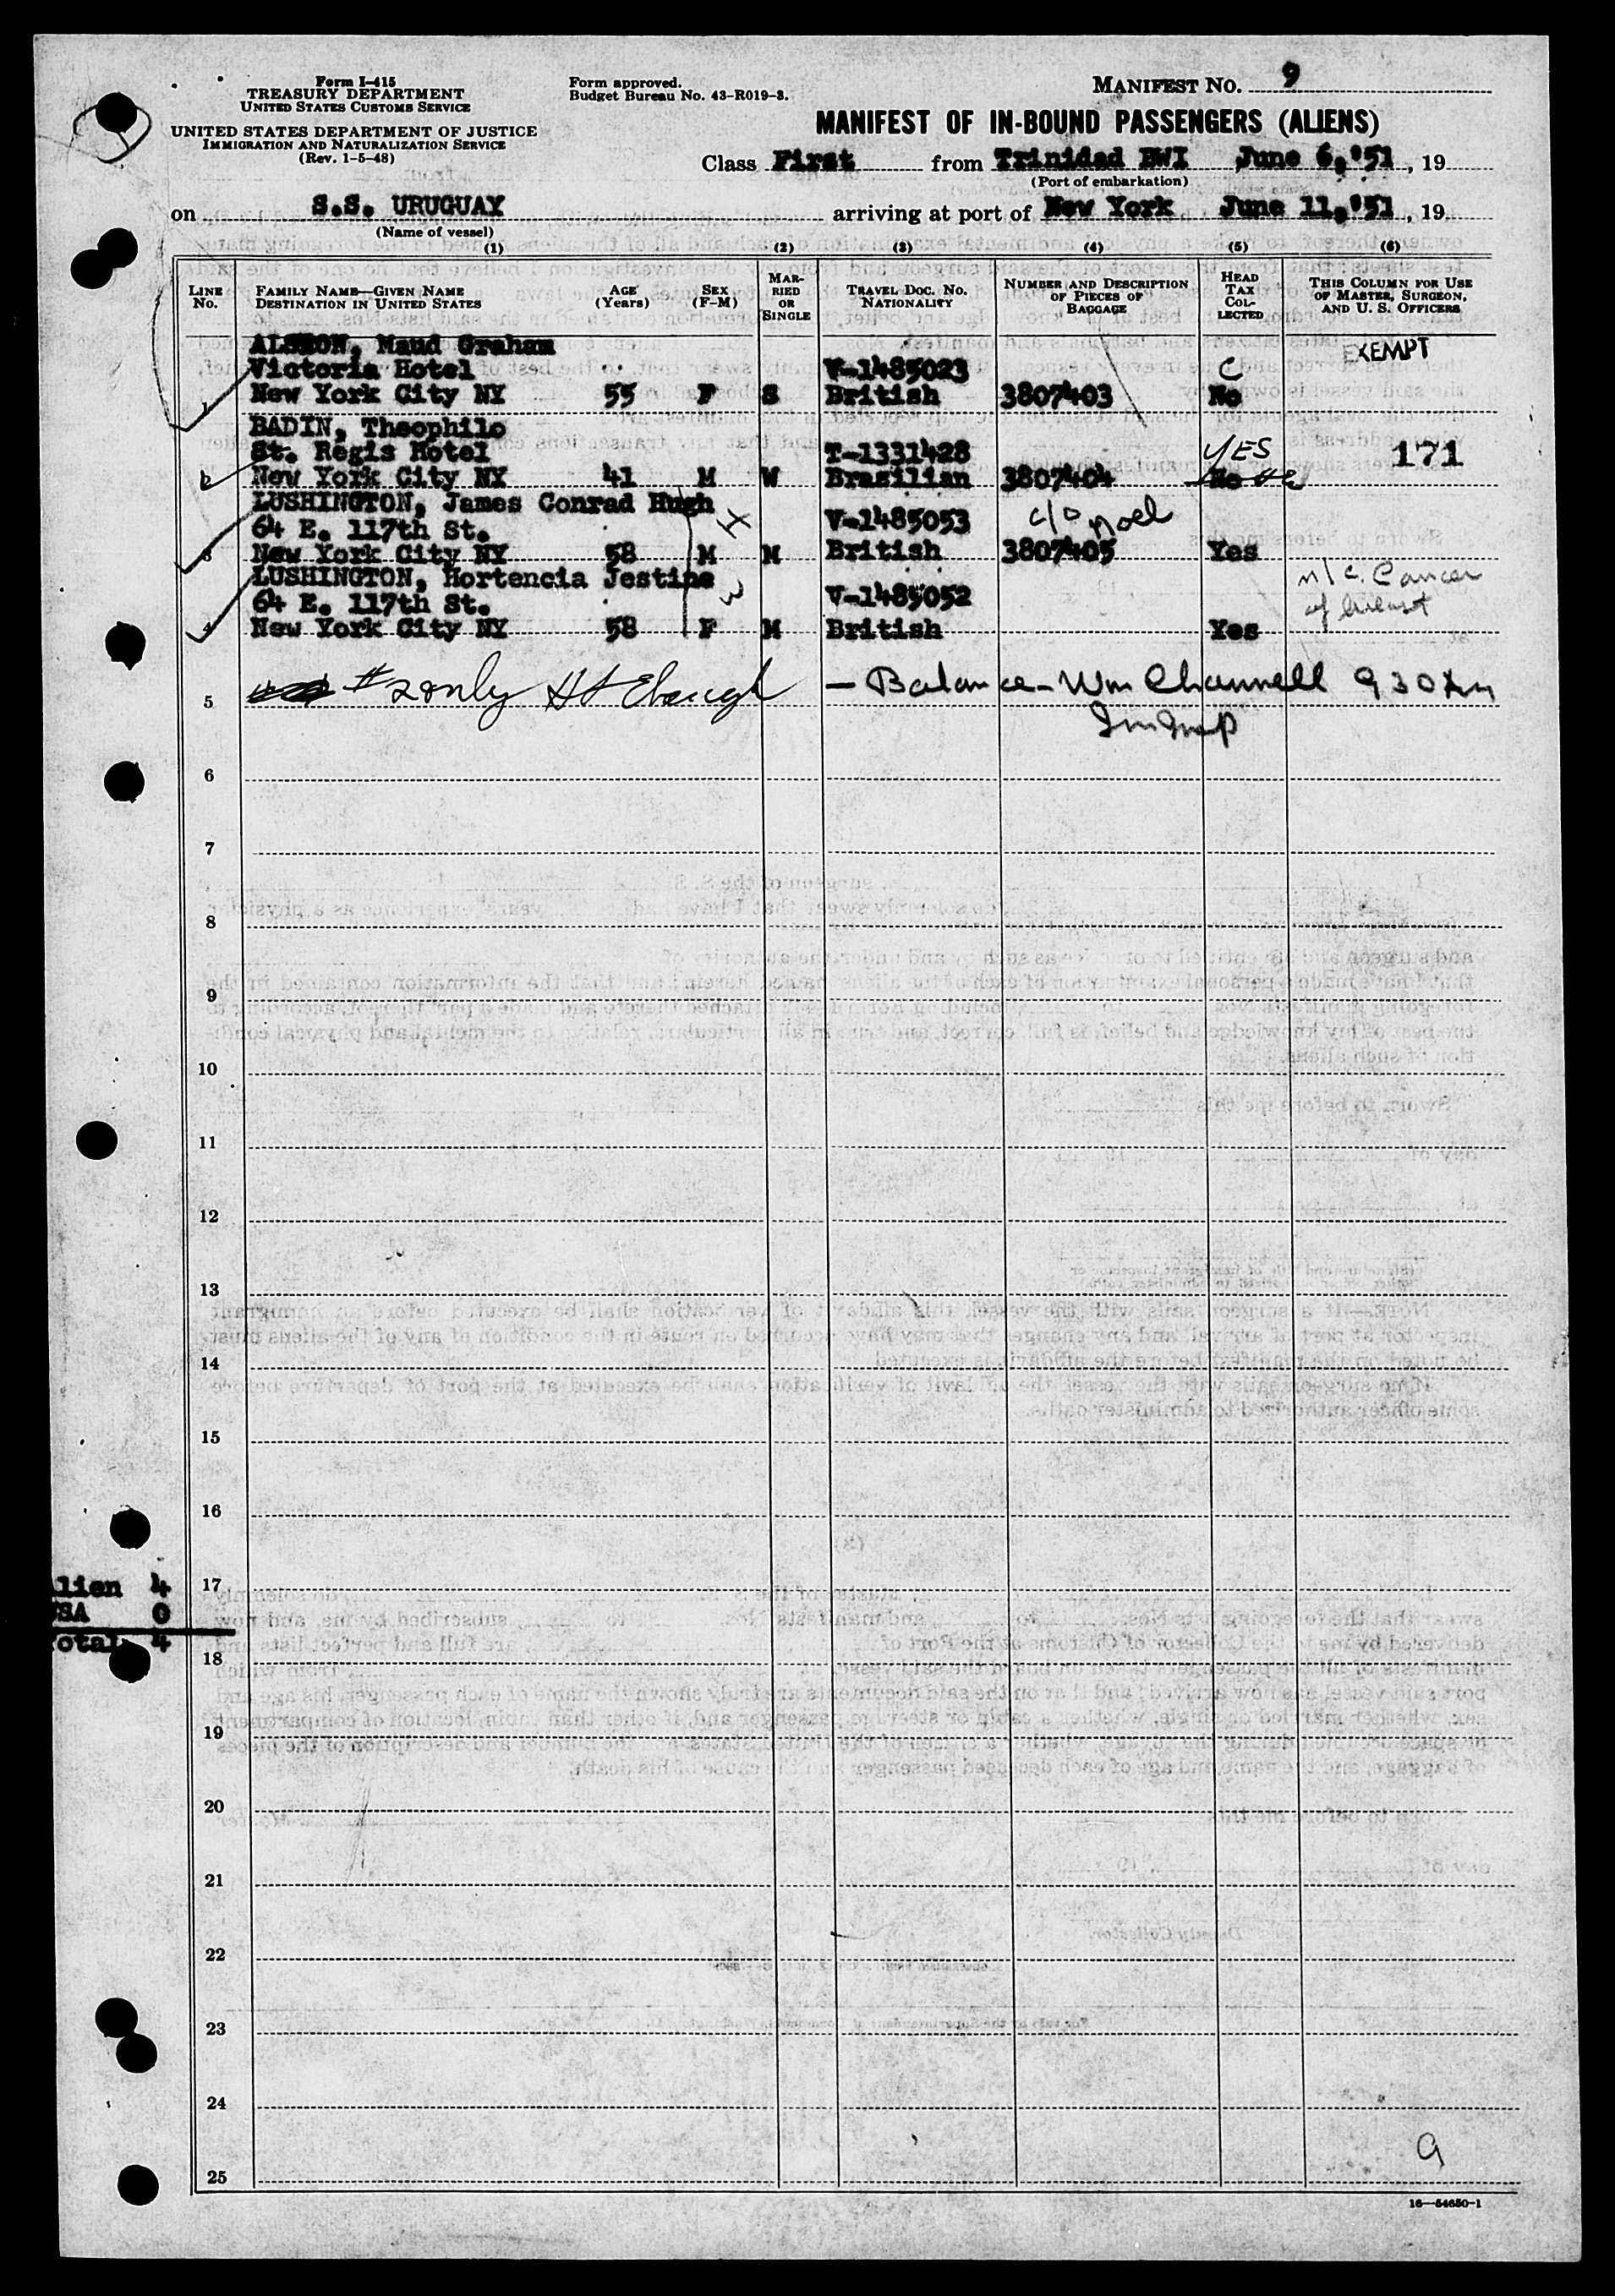 Form I-415
TREASURY DEPARTMENT
UNITED STATES CUSTOMS SERVICE
UNITED STATES DEPARTMENT OF JUSTICE
IMMIGRATION AND NATURALIZATION SERVICE
(Rev. 1-5-48)
Form approved.
Budget Bureau No. 43-R019-3.
MANIFEST NO. 9
MANIFEST OF IN-BOUND PASSENGERS (ALIENS)
Class First from Trinidad BWI June 6, '51, 19
(Port of embarkation)
on S.S. URUGUAY arriving at port of New York June 11, '51, 19
(Name of vessel)
(1) (2) (3) (4) (5) (6)
LINE No.
FAMILY NAME—GIVEN NAME
DESTINATION IN UNITED STATES
AGE (Years)
SEX (F-M)
MARRIED OR SINGLE
TRAVEL DOC. NO.
NATIONALITY
NUMBER AND DESCRIPTION OF PIECES OF BAGGAGE
HEAD TAX COLLECTED
THIS COLUMN FOR USE OF MASTER, SURGEON, AND U. S. OFFICERS
Maud Graham EXEMPT
Victoria Hotel V-1485023 C
1 New York City NY 55 F S British 3807403 No
BADIN, Theophilo
St. Regis Hotel T-1331428 YES 171
2 New York City NY 41 M W Brasilian 3807404 No
LUSHINGTON, James Conrad Hugh c/o Noel
64 E. 117th St. V-1485053
3 New York City NY 58 M M British 3807405 Yes
LUSHINGTON, Hortencia Jestine n/c. Cancer
64 E. 117th St. V-1485052 of breast
4 New York City NY 58 F M British Yes
5 #2 only — Balance - Wm Channell
6
7
8
9
10
11
12
13
14
15
16
17
18
19
20
21
22
23
24
25
lien 4
SA 0
otal 4
9
16—54650-1